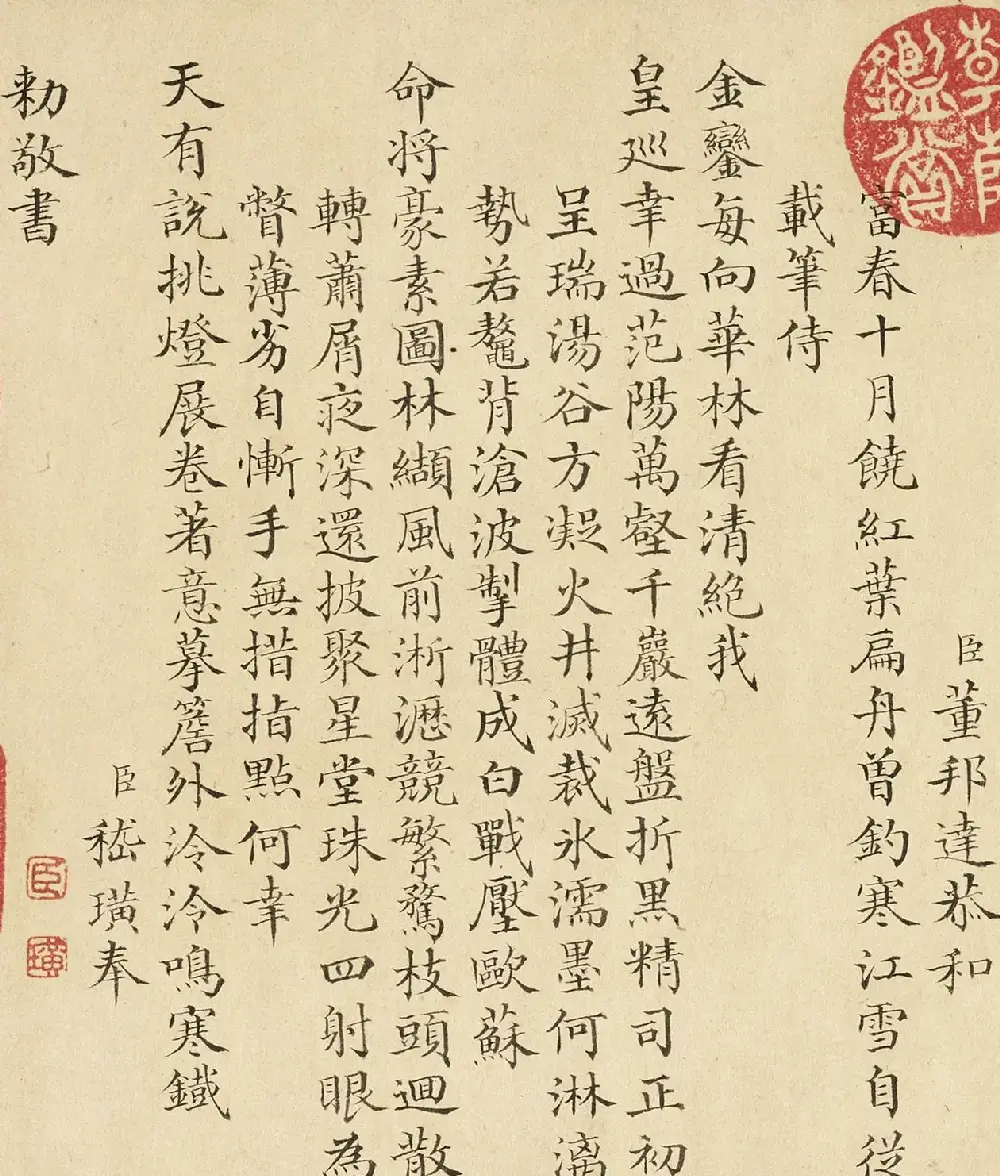 臣董邦達恭和
富春十月饒紅葉扁舟曾釣寒江雪自從
載筆侍
金鑾每向華林看清絕我
皇巡幸過范陽萬壑千巖遠盤折黑精司正初
呈瑞湯谷方凝火井滅裁氷濡墨何淋漓
勢若鼇背滄波掣體成白戰壓歐蘇
命将豪素圖林纈風前淅瀝競繁驚枝頭迴散
轉蕭屑夜深還披聚星堂珠光四射眼為
瞥薄劣自慚手無措指點何幸
天有說挑燈展卷著意摹簷外泠泠鳴寒鐵
臣嵇璜奉
勅敬書
臣
璜